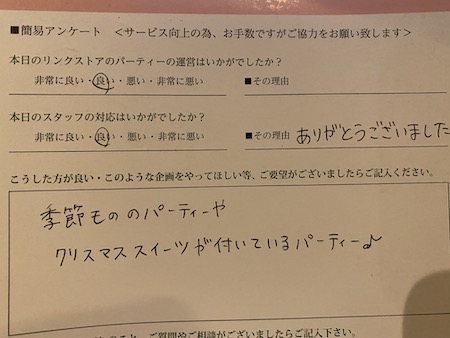 ■簡易アンケート ＜サービス向上の為、お手数ですがご協力をお願い致します＞
本日のリンクストアのパーティーの運営はいかがでしたか？
非常に良い・良い・悪い・非常に悪い ■その理由
本日のスタッフの対応はいかがでしたか？
非常に良い・良い・悪い・非常に悪い ■その理由 ありがとうございました
こうした方が良い・このような企画をやってほしい等、ご要望がございましたらご記入ください。
季節もののパーティーや
クリスマススイーツが付いているパーティー♪
ご質問やご相談がございましたらご記入下さい。